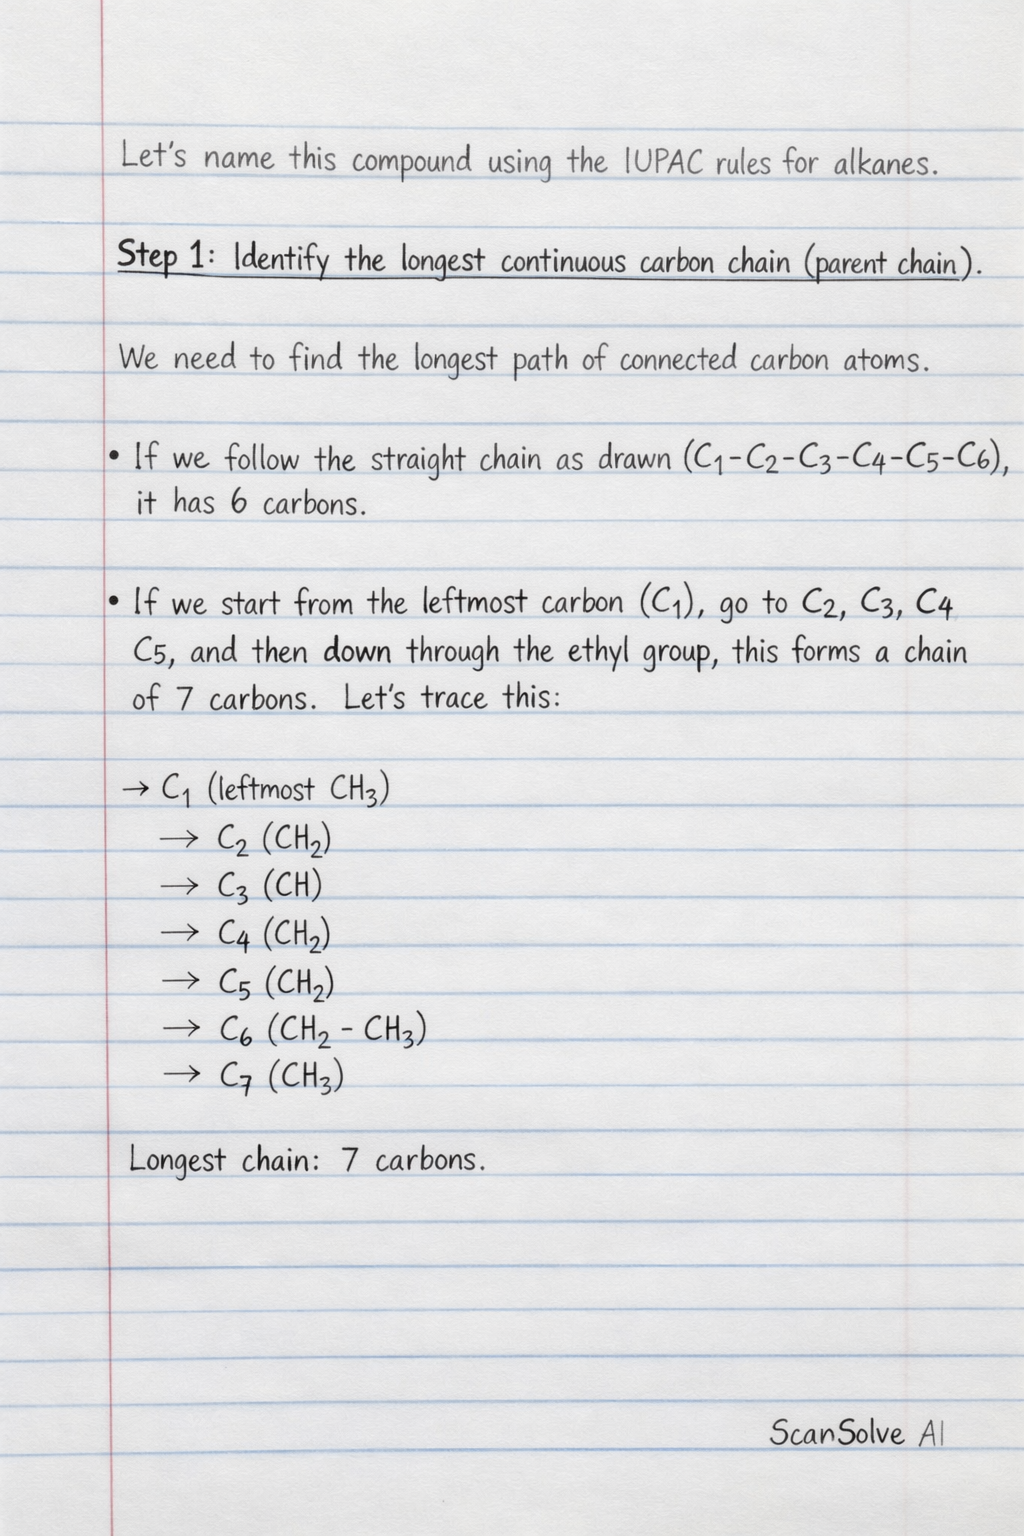 Let's name this compound using the IUPAC rules for alkanes.
Step 1: Identify the longest continuous carbon chain (parent chain).
We need to find the longest path of connected carbon atoms.
• If we follow the straight chain as drawn (C₁-C₂-C₃-C₄-C₅-C₆),
it has 6 carbons.
• If we start from the leftmost carbon (C₁), go to C₂, C₃, C₄
C₅, and then down through the ethyl group, this forms a chain
of 7 carbons. Let's trace this:
→ C₁ (leftmost CH₃)
→ C₂ (CH₂)
→ C₃ (CH)
→ C₄ (CH₂)
→ C₅ (CH₂)
→ C₆ (CH₂ - CH₃)
→ C₇ (CH₃)
Longest chain: 7 carbons.
ScanSolve AI